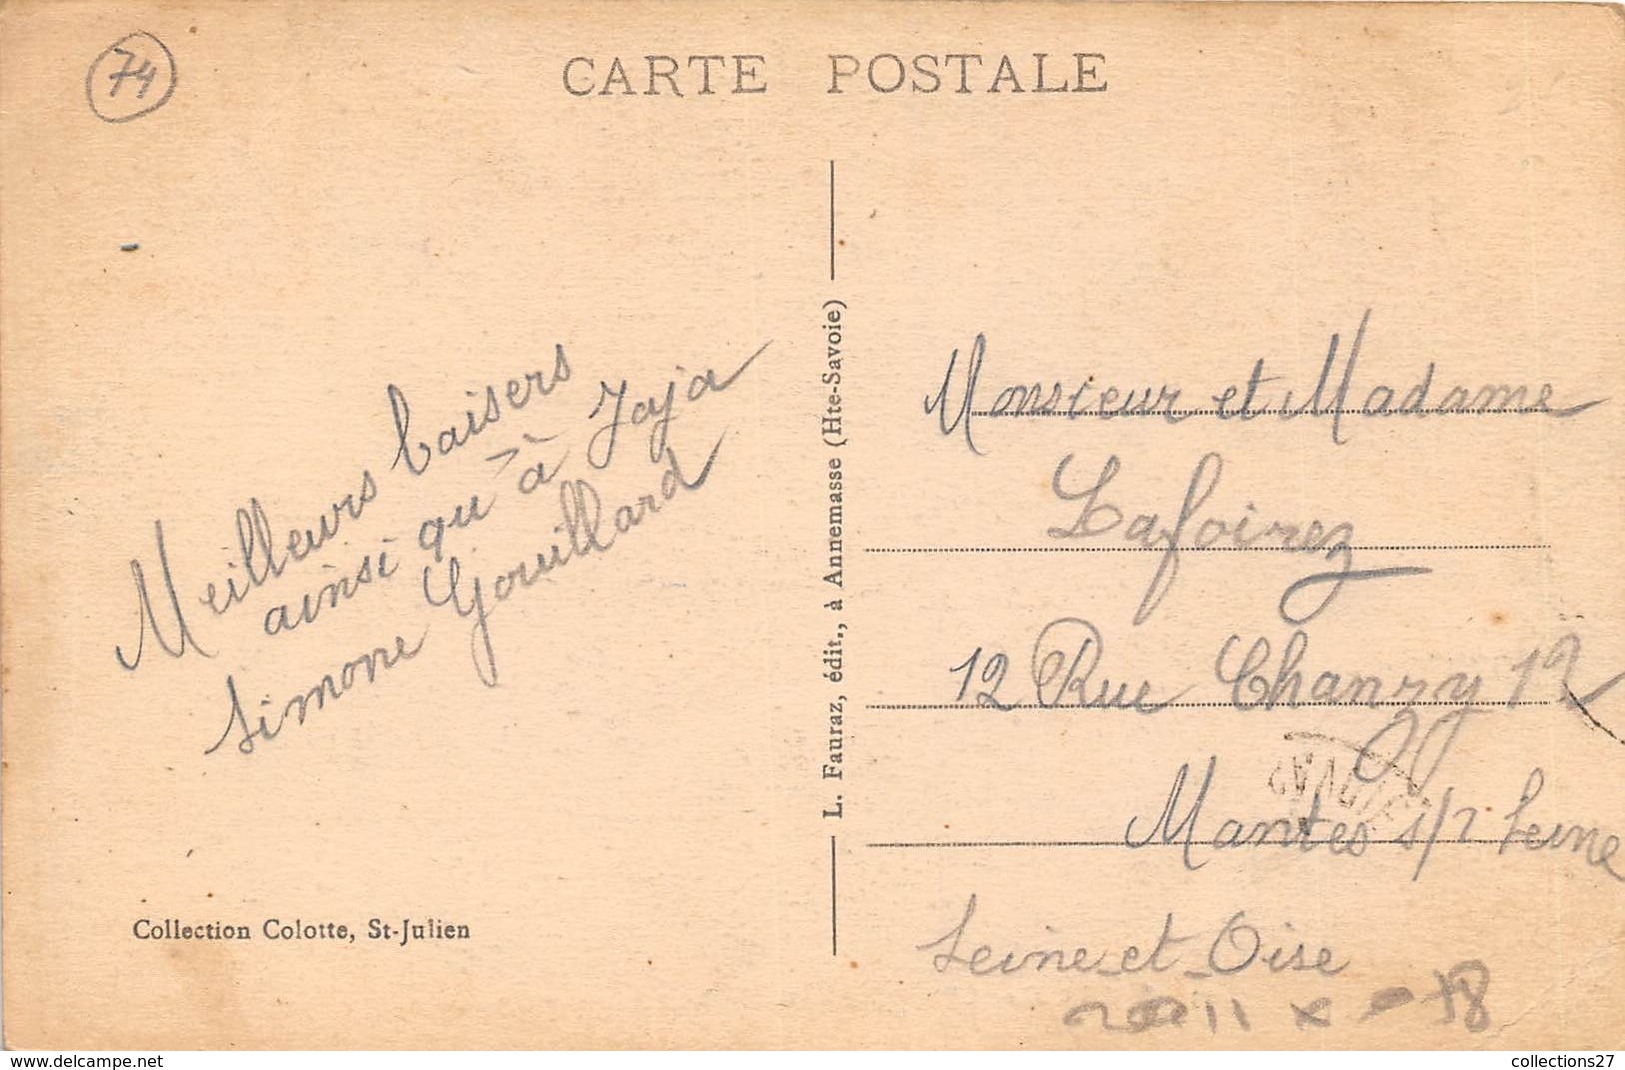 74
CARTE POSTALE
Meilleurs baisers
ainsi qu'à Jaja
Simone Gouillard
Collection Colotte, St-Julien
L. Fauraz, édit., à Annemasse (Hte-Savoie)
Monsieur et Madame
Lafoirez
12 Rue Chanzy 12
Mantes s/ Seine
Seine-et-Oise
collections27